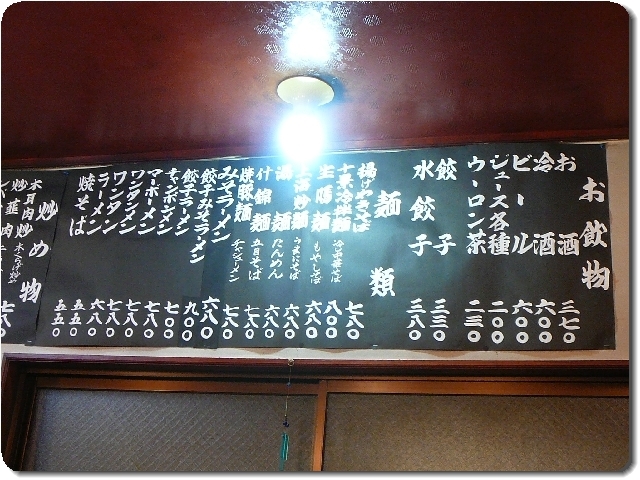 お飲物
お酒 三七〇
冷酒 六〇〇
ビール 六〇〇
ジュース各種 二〇〇
ウーロン茶 二三〇
餃子 三三〇
水餃子 三八〇
麺類
揚げやきそば 七八〇
冷拌麺 八〇〇
生馬麺 もやしそば 六八〇
上海炒麺 うまにそば 六八〇
湯麺 たんめん 六八〇
什錦麺 五目そば 七八〇
焼豚麺 チャーシューメン 七八〇
みそラーメン 六八〇
餃子みそラーメン 九〇〇
餃子ラーメン
チャンポンメン 七八〇
マーボーメン 七八〇
ワンタンメン 七八〇
ワンタン 六八〇
ラーメン 五五〇
焼そば 五五〇
炒め物
木耳肉炒 七八〇